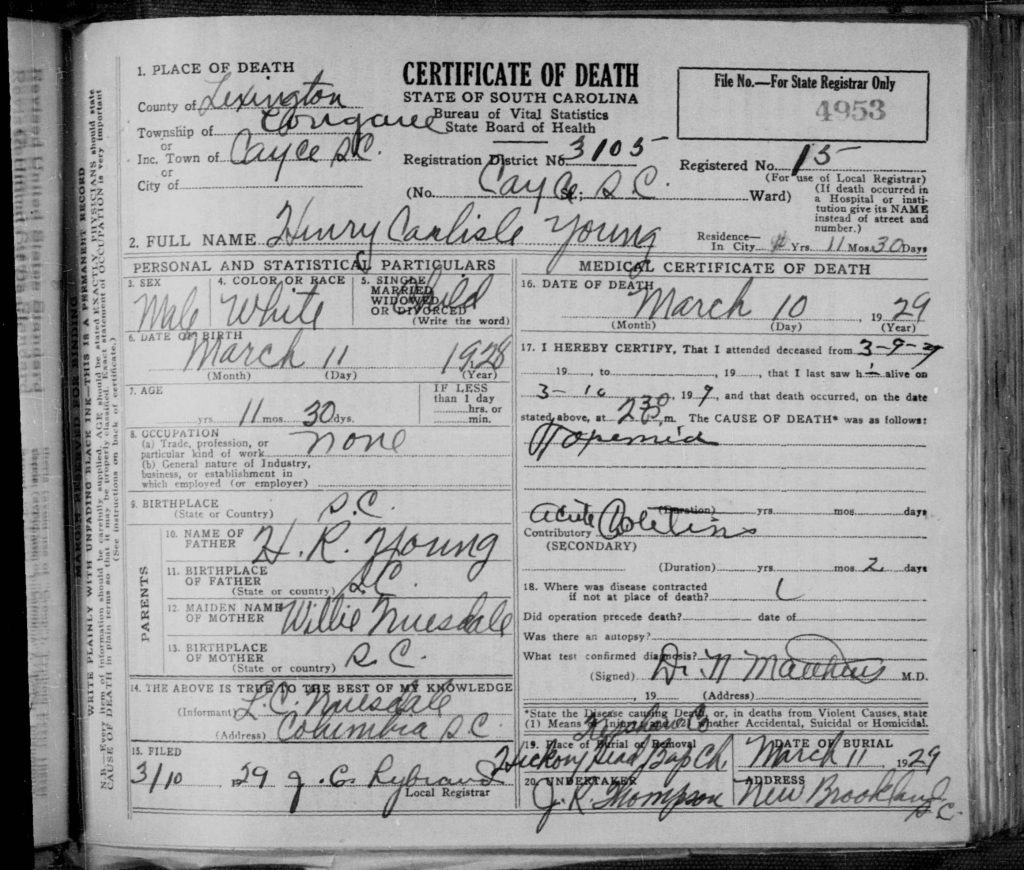 CERTIFICATE OF DEATH
STATE OF SOUTH CAROLINA
Bureau of Vital Statistics
State Board of Health
File No.—For State Registrar Only
4953
1. PLACE OF DEATH
County of Lexington
Township of Congaree
or
Inc. Town of Cayce S.C.
or
City of
Registration District No. 3105
Registered No. 15
(For use of Local Registrar)
(No. Cayce St.; S.C. Ward)
(If death occurred in a Hospital or institution give its NAME instead of street and number.)
2. FULL NAME Henry Carlisle Young
Residence—
In City Yrs. 11 Mos. 30 Days
PERSONAL AND STATISTICAL PARTICULARS
3. SEX
Male
4. COLOR OR RACE
White
5. SINGLE
MARRIED
WIDOWED
OR DIVORCED
Child
(Write the word)
6. DATE OF BIRTH
March 11 1928
(Month) (Day) (Year)
7. AGE
yrs. 11 mos. 30 dys.
IF LESS
than 1 day
hrs. or
min.
8. OCCUPATION
(a) Trade, profession, or
particular kind of work none
(b) General nature of Industry,
business, or establishment in
which employed (or employer)
9. BIRTHPLACE
(State or Country) S.C.
PARENTS
10. NAME OF
FATHER H. R. Young
11. BIRTHPLACE
OF FATHER
(State or country) S.C.
12. MAIDEN NAME
OF MOTHER Willie
13. BIRTHPLACE
OF MOTHER
(State or country) S.C.
14. THE ABOVE IS TRUE TO THE BEST OF MY KNOWLEDGE
(Informant) L.C.
(Address) Columbia S.C.
15. FILED
3/10 1929 J. C. Lybrand
Local Registrar
MEDICAL CERTIFICATE OF DEATH
16. DATE OF DEATH
March 10 1929
(Month) (Day) (Year)
17. I HEREBY CERTIFY, That I attended deceased from 3-9-29
19 , to , 19 , that I last saw hi alive on
3-10, 19 9, and that death occurred, on the date
stated above, at 2 30 m. The CAUSE OF DEATH* was as follows:
Toxemia
(Duration) yrs. mos. days
Contributory Acute Colitis
(SECONDARY)
(Duration) yrs. mos. 2 days
18. Where was disease contracted
if not at place of death?
Did operation precede death? date of
Was there an autopsy?
What test confirmed diagnosis?
(Signed) Dr. N Matthews M.D.
, 19 (Address)
*State the Disease causing Death, or, in deaths from Violent Causes, state
(1) Means of Injury; and (2) whether Accidental, Suicidal or Homicidal.
19. Place of Burial or Removal
Hickory Head Bap Ch
DATE OF BURIAL
March 11 1929
20. UNDERTAKER
J. R. Thompson
ADDRESS
New Brookland S.C.
MARGIN RESERVED FOR BINDING
WRITE PLAINLY WITH UNFADING BLACK INK—THIS IS A PERMANENT RECORD
N.B.—Every item of information should be carefully supplied. AGE should be stated EXACTLY. PHYSICIANS should state
CAUSE OF DEATH in plain terms so that it may be properly classified. Exact statement of OCCUPATION is very important
(See instructions on back of certificate.)